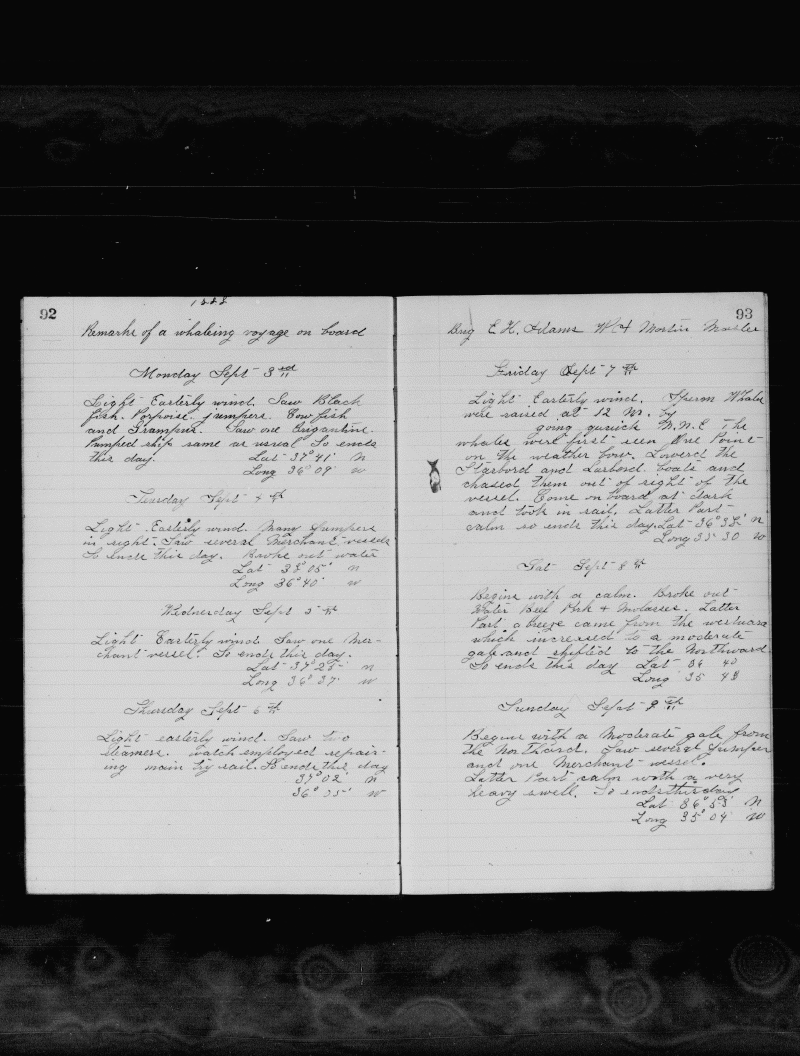 92
1888
Remarks of a whaleing voyage on board
Monday Sept 3rd
Light Easterly wind. Saw Black
fish. Porpoise. jumpers. Cow fish
and Grampus. Saw one Brigantine.
Pumped ship same as usual So ends
this day. Lat 37° 41' N
Long 36° 09' W
Tuesday Sept 4th
Light Easterly wind. Many jumpers
in sight. Saw several Merchant vessels
So ends this day. Broke out water
Lat 38° 05' N
Long 36° 40' W
Wednesday Sept 5th
Light Easterly wind Saw one Mer-
chant vessel. So ends this day.
Lat 37° 25' N
Long 36° 37' W
Thursday Sept 6th
Light easterly wind. Saw two
steamers. Watch employed repair-
ing main try sail. So ends this day
37° 02' N
36° 35' W
93
Brig E. H. Adams Master
Friday Sept 7th
Light Easterly wind. Sperm Whales
were raised at 12 M. by
going quick N.N.E The
whales were first seen One Point
on the weather bow. Lowerd the
Starbord and Larbord boats and
chased them out of sight of the
vessel. Come on board at dark
and took in sail. Latter Part
calm so ends this day. Lat 36° N
Long 35 30 W
Sat Sept 8th
Begins with a calm. Broke out
Water Beef Pork + Molasses. Latter
Part a breeze came from the westward
which increased to a moderate
gale and shifted to the Northward
So ends this day Lat 36 40
Long 35 48
Sunday Sept 9th
Begins with a Moderate gale from
the Northard. Saw several jumpers
and one Merchant vessel.
Latter Part calm with a very
heavy swell. So ends this day
Lat 36° 53' N
Long 35° 04' W